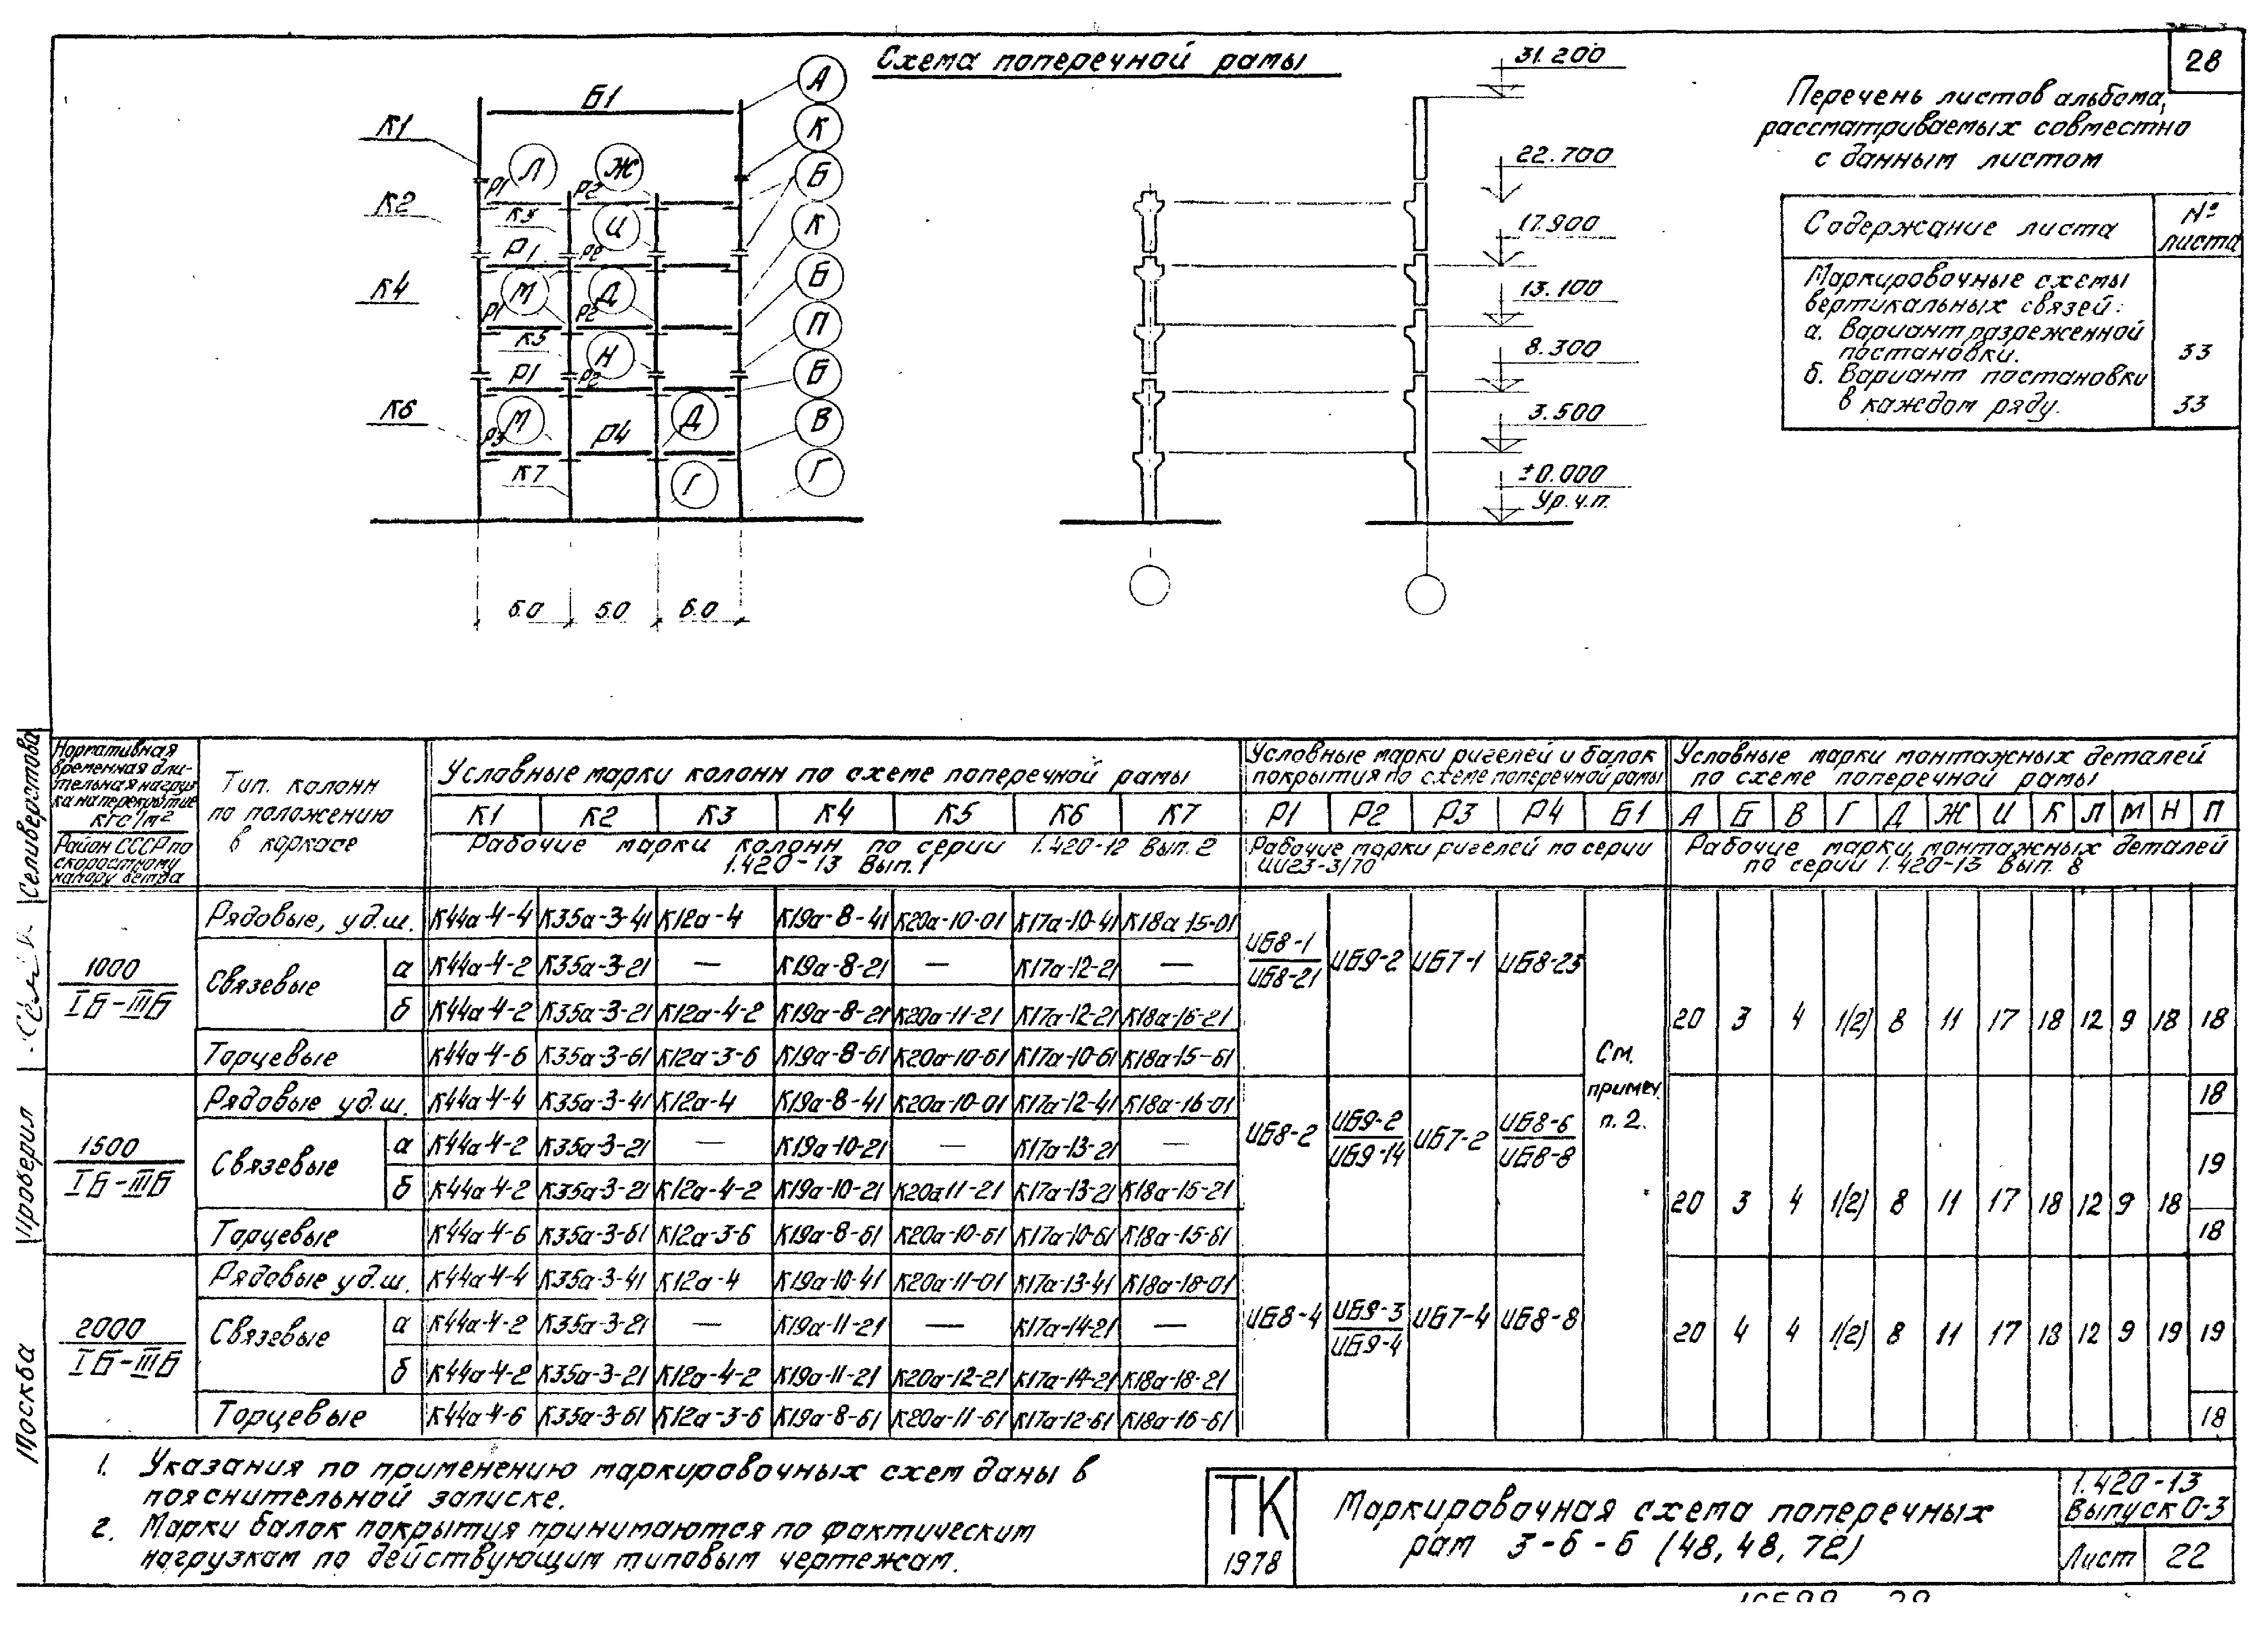 28
Схема поперечной рамы
Б1
К1
К2
К4
К6
А
К
Б
К
Б
П
Б
В
Г
Л
Ж
Р1
Р2
К3
И
Р1
Р2
М
Д
Р1
Р2
К5
Н
Р1
Р2
М
Д
Р3
Р4
К7
Г
6.0
6.0
6.0
31.200
22.700
17.900
13.100
8.300
3.500
±0.000
Ур.ч.п.
Перечень листов альбома,
рассматриваемых совместно
с данным листом
Содержание листа
№ листа
Маркировочные схемы
вертикальных связей:
а. Вариант разреженной
постановки. 33
б. Вариант постановки
в каждом ряду. 33
Нормативная
временная дли-
тельная нагруз
ка на перекрытие
кгс/м²
Район СССР по
скоростному
напору ветра
Тип. колонн
по положению
в каркасе
Условные марки колонн по схеме поперечной рамы
К1 К2 К3 К4 К5 К6 К7
Рабочие марки колонн по серии 1.420-12 Вып. 2
1.420-13 Вып. 1
Условные марки ригелей и балок
покрытия по схеме поперечной рамы
Р1 Р2 Р3 Р4 Б1
Рабочие марки ригелей по серии
ИИ23-3/70
Условные марки монтажных деталей
по схеме поперечной рамы
А Б В Г Д Ж И К Л М Н П
Рабочие марки монтажных деталей
по серии 1.420-13 Вып. 8
1000
IБ-IIIБ
Рядовые, уд.ш. К44а-4-4 К35а-3-41 К12а-4 К19а-8-41 К20а-10-01 К17а-10-41 К18а-15-01
Связевые
а К44а-4-2 К35а-3-21 — К19а-8-21 — К17а-12-21 —
б К44а-4-2 К35а-3-21 К12а-4-2 К19а-8-21 К20а-11-21 К17а-12-21 К18а-16-21
Торцевые К44а-4-6 К35а-3-61 К12а-3-6 К19а-8-61 К20а-10-61 К17а-10-61 К18а-15-61
ИБ8-1
ИБ8-21
ИБ9-2 ИБ7-1 ИБ8-23
См.
примеч.
п. 2.
20 3 4 1(2) 8 11 17 18 12 9 18 18
1500
IБ-IIIБ
Рядовые уд.ш. К44а-4-4 К35а-3-41 К12а-4 К19а-8-41 К20а-10-01 К17а-12-41 К18а-16-01
Связевые
а К44а-4-2 К35а-3-21 — К19а-10-21 — К17а-13-21 —
б К44а-4-2 К35а-3-21 К12а-4-2 К19а-10-21 К20а11-21 К17а-13-21 К18а-15-21
Торцевые К44а-4-6 К35а-3-61 К12а-3-6 К19а-8-61 К20а-10-61 К17а-10-61 К18а-15-61
ИБ8-2
ИБ9-2
ИБ9-14
ИБ7-2
ИБ8-6
ИБ8-8
20 3 4 1(2) 8 11 17 18 12 9 18
18
19
18
2000
IБ-IIIБ
Рядовые уд.ш. К44а-4-4 К35а-3-41 К12а-4 К19а-10-41 К20а-11-01 К17а-13-41 К18а-18-01
Связевые
а К44а-4-2 К35а-3-21 — К19а-11-21 — К17а-14-21 —
б К44а-4-2 К35а-3-21 К12а-4-2 К19а-11-21 К20а-12-21 К17а-14-21 К18а-18-21
Торцевые К44а-4-6 К35а-3-61 К12а-3-6 К19а-8-61 К20а-11-61 К17а-12-61 К18а-16-61
ИБ8-4
ИБ9-3
ИБ9-4
ИБ7-4 ИБ8-8
20 4 4 1(2) 8 11 17 18 12 9 19 19
18
1. Указания по применению маркировочных схем даны в
пояснительной записке.
2. Марки балок покрытия принимаются по фактическим
нагрузкам по действующим типовым чертежам.
ТК
1978
Маркировочная схема поперечных
рам 3-6-6 (48, 48, 72)
1.420-13
Выпуск 0-3
Лист 22
Москва
Проверил
Селиверстова